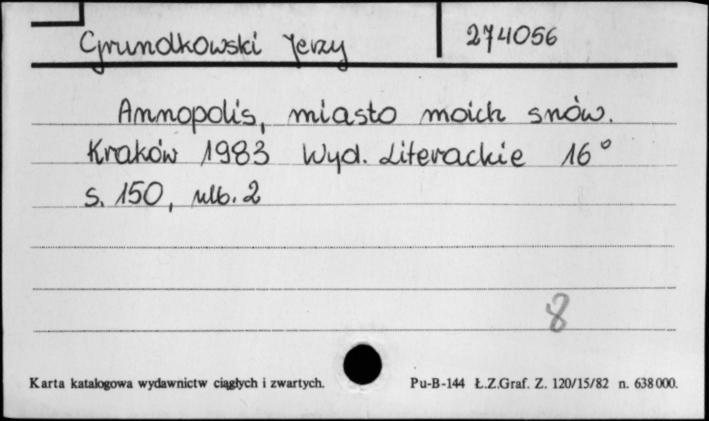 Grundkowski Jerzy 274056
Annopolis, miasto moich snów.
Kraków 1983 Wyd. Literackie 16°
s. 150, nlb. 2
8
Karta katalogowa wydawnictw ciągłych i zwartych. Pu-B-144 Ł.Z.Graf. Z. 120/15/82 n. 638000.